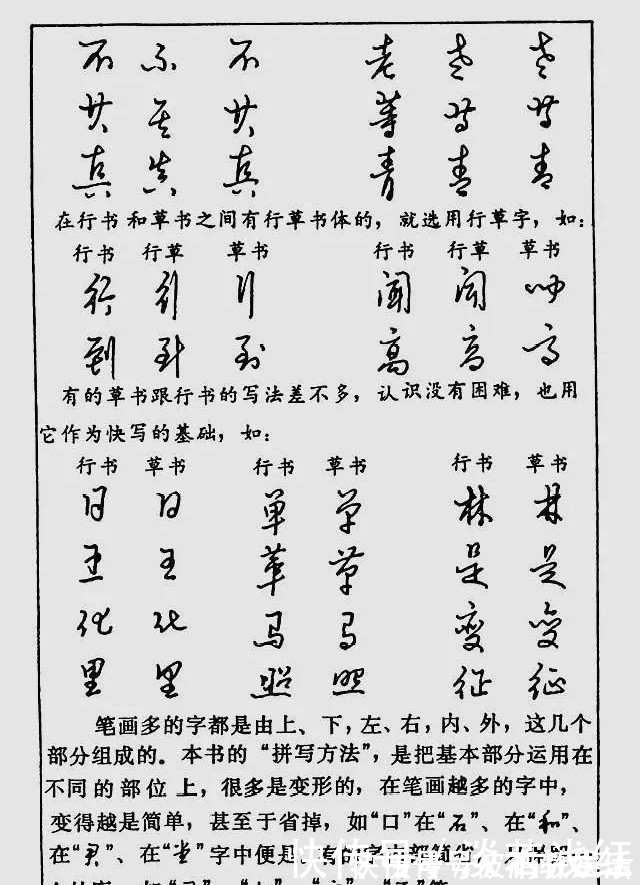 不 不 不 老 老 老
共 共 共 等 等 等
真 真 真 青 青 青
在行书和草书之间有行草书体的，就选用行草字，如：
行书 行草 草书 行书 行草 草书
行 行 行 闻 闻 闻
到 到 到 高 高 高
有的草书跟行书的写法差不多，认识没有困难，也用
它作为快写的基础，如：
行书 草书 行书 草书 行书 草书
日 日 单 单 林 林
王 王 草 草 是 是
化 化 马 马 变 变
里 里 照 照 征 征
笔画多的字都是由上、下，左、右，内、外，这几个
部分组成的。本书的“拼写方法”，是把基本部分运用在
不同的部位上，很多是变形的，在笔画越多的字中，
变得越是简单，甚至于省掉，如“口”在“石”、在“和”、
在“君”、在“堂”字中便是